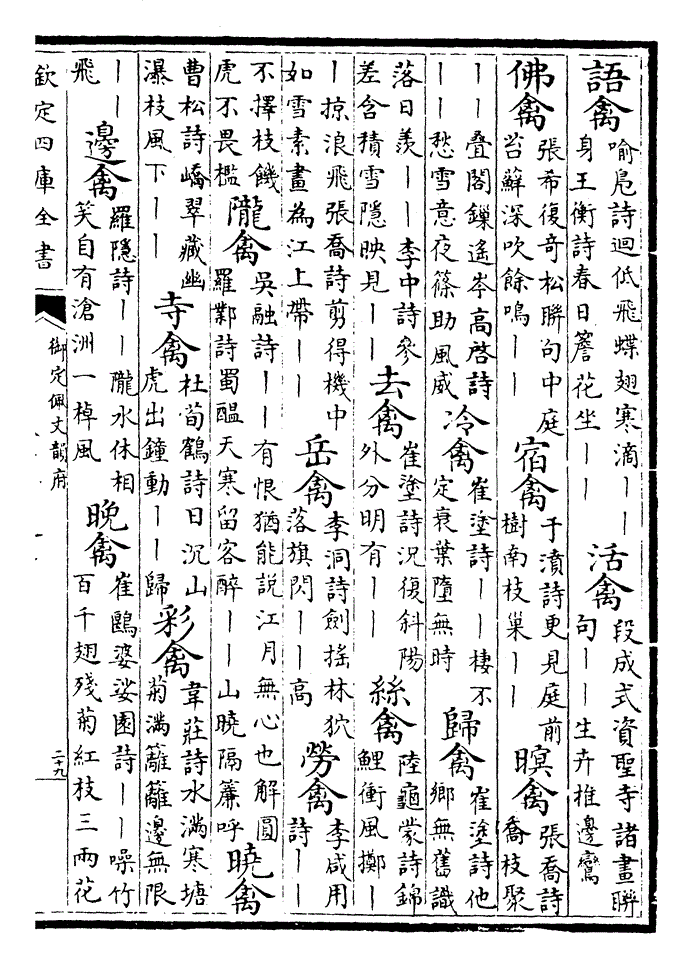 語禽喻鳧詩迴低飛蝶翅寒滴丨丨身王衡詩春日簷花坐丨丨活禽段成式資聖寺諸畫聯句丨丨生卉推邊鸞
佛禽張希復奇松聯句中庭苔蘚深吹餘鳴丨丨宿禽于濆詩更見庭前樹南枝巢丨丨暝禽張喬詩喬枝聚
丨丨疊閣鏁遙岑高啓詩丨丨愁雪意夜篠助風威冷禽崔塗詩丨丨棲不定衰葉墮無時歸禽崔塗詩他鄉無舊識
落日羨丨丨李中詩參差含積雪隱映見丨丨去禽崔塗詩況復斜陽外分明有丨丨絲禽陸龜蒙詩錦鯉衝風擲丨
丨掠浪飛張喬詩剪得機中如雪素畫為江上帶丨丨岳禽李洞詩劍搖林狖落旗閃丨丨高勞禽李咸用詩丨丨
不擇枝饑虎不畏檻隴禽吳融詩丨丨有恨猶能說江月無心也解圓羅鄴詩蜀醖天寒留客醉丨丨山曉隔簾呼曉禽
曹松詩嶠翠藏幽瀑枝風下丨丨寺禽杜荀鶴詩日沉山虎出鐘動丨丨歸彩禽韋莊詩水滿寒塘菊滿籬籬邊無限
丨丨飛邊禽羅隱詩丨丨隴水休相笑自有滄洲一棹風晚禽崔鷗婆娑園詩丨丨噪竹百千翅殘菊紅枝三兩花
欽定四庫全書
御定佩文韻府
二十九